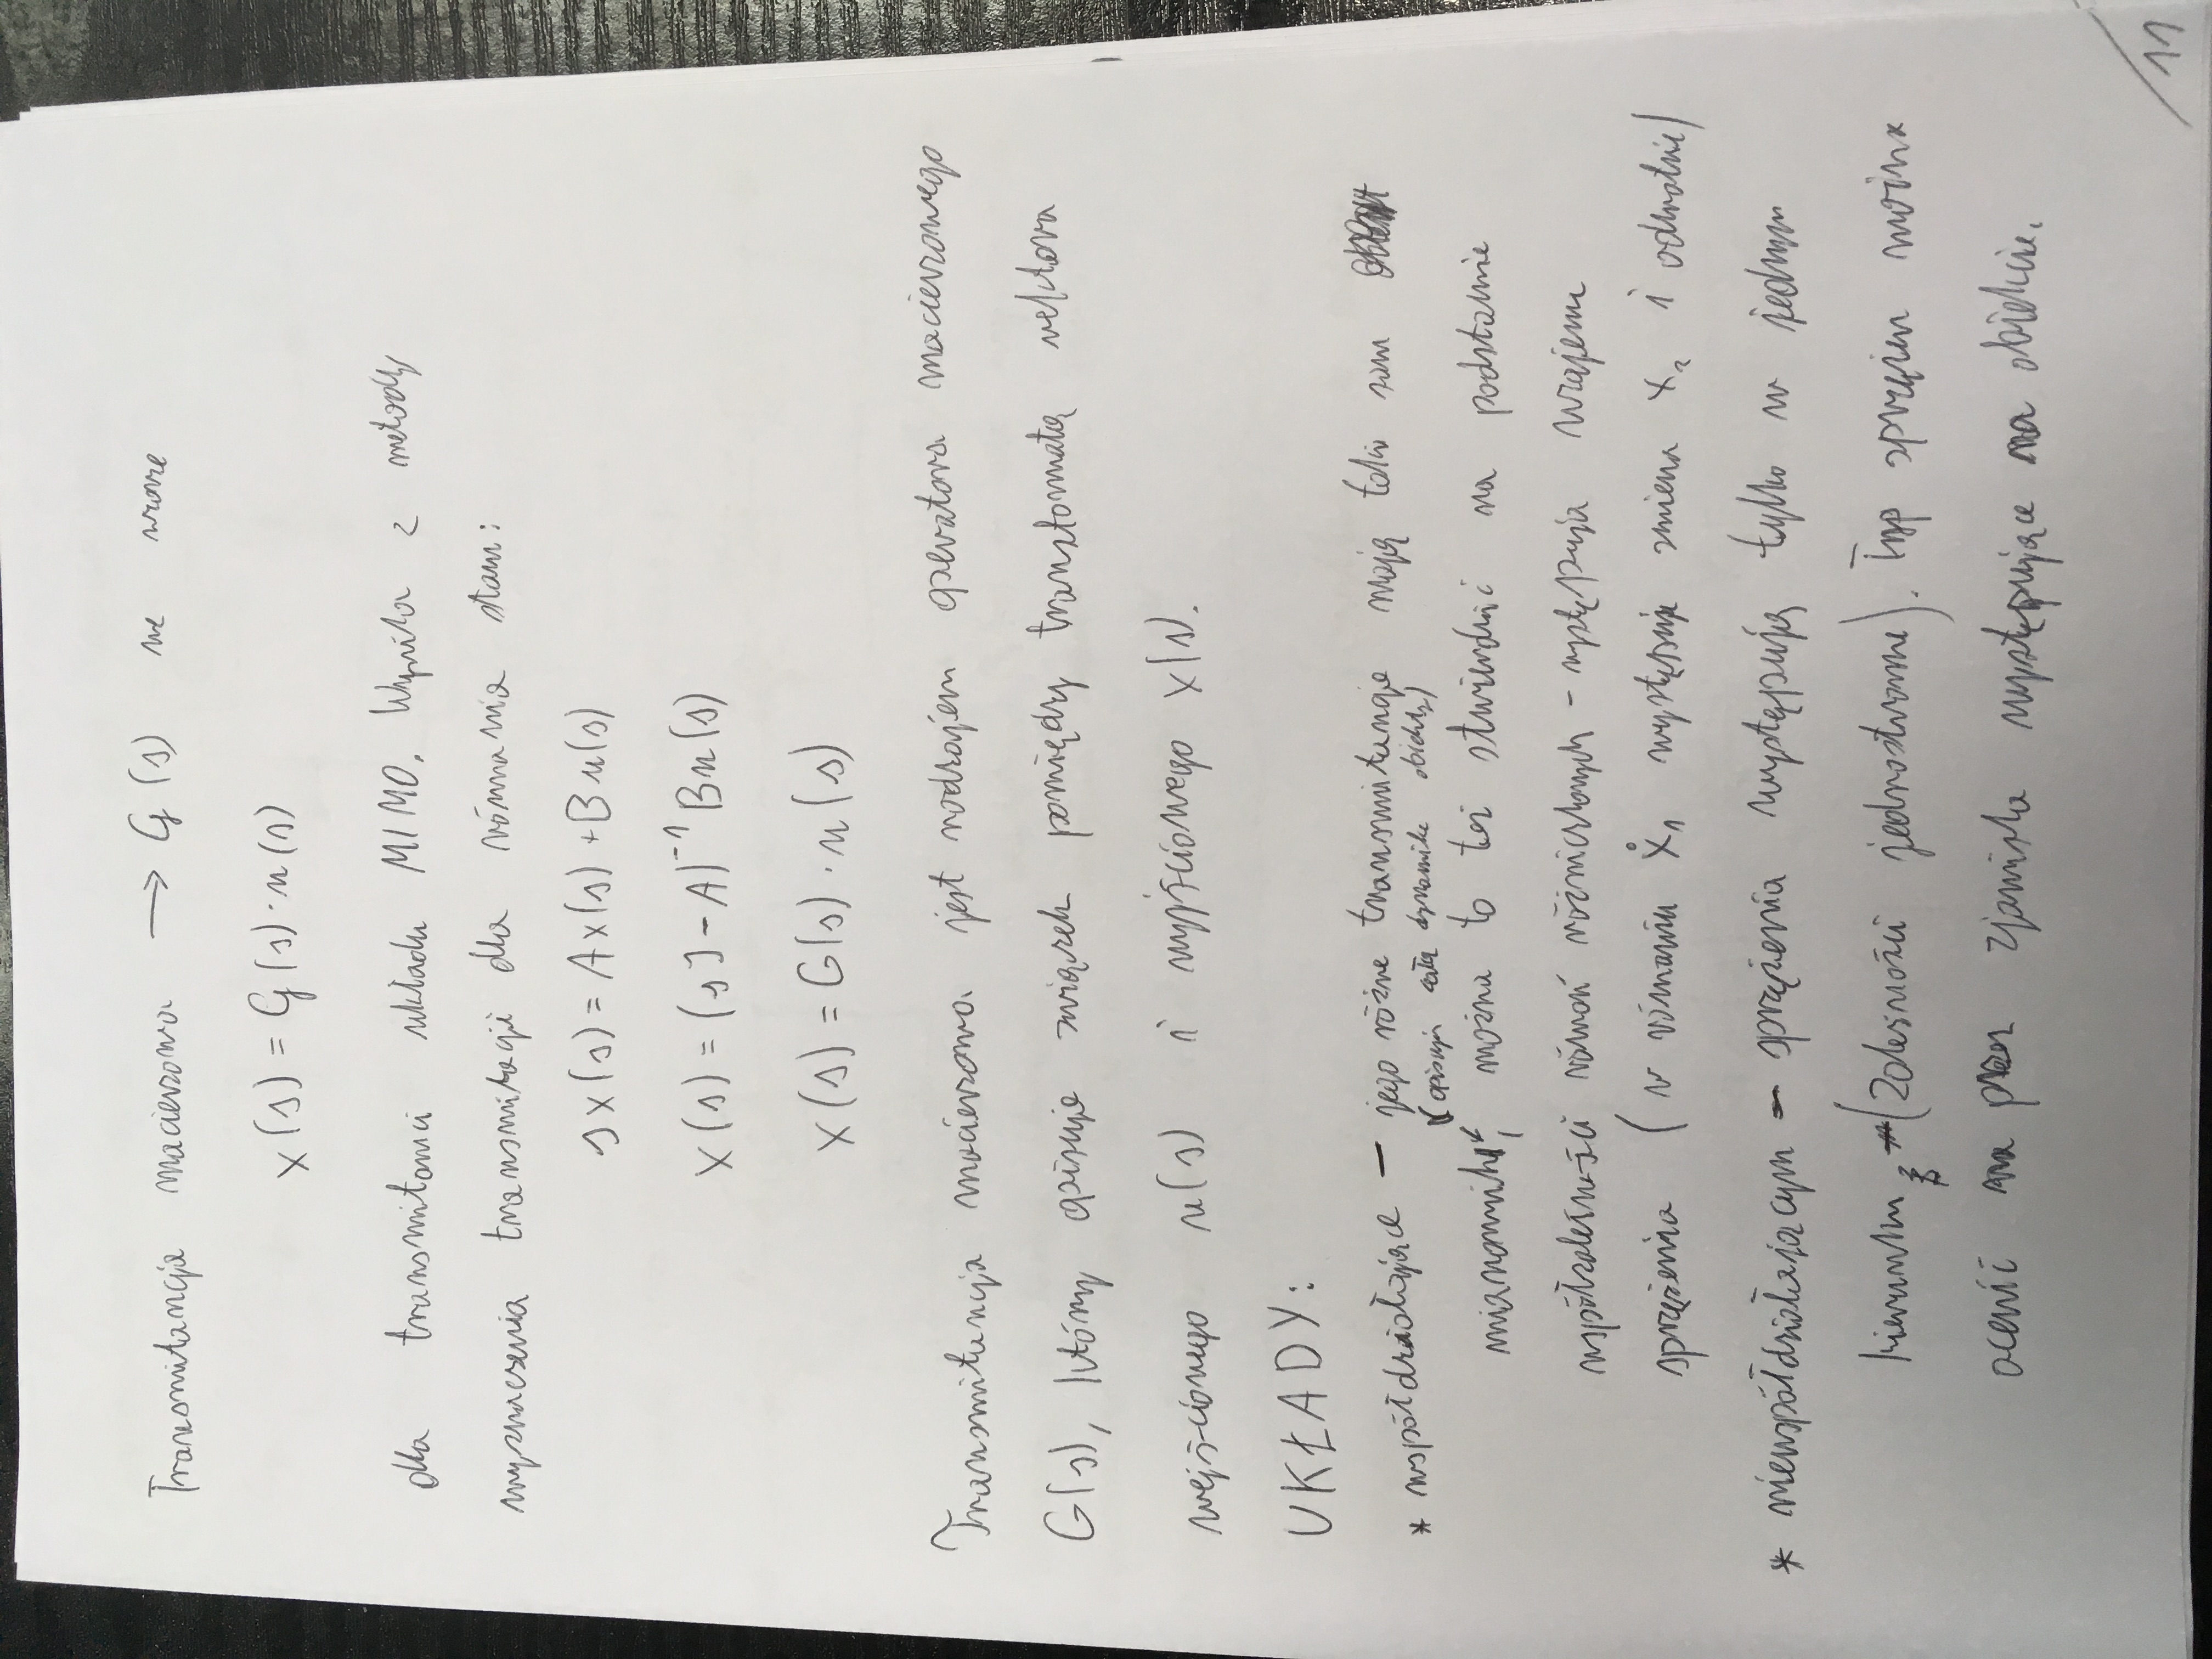 Transmitancja macierzowa → G(s) we wzorze
x(s) = G(s)·u(s)
dla transmitancji układu MIMO. Wynika z metody
wyznaczenia transmitacji dla równania stanu:
sx(s) = Ax(s) + Bu(s)
x(s) = (sI - A)⁻¹ Bu(s)
x(s) = G(s)·u(s)
Transmitancja macierzowa jest rodzajem operatora macierzowego
G(s), który opisuje związek pomiędzy transformatą wektora
wejściowego u(s) i wyjściowego x(s).
UKŁADY:
* współdziałające – jego różne transmitancje mają taki sam
(opisują całą dynamikę obiektu)
mianownik, można to też stwierdzić na podstawie
współzależności równań różniczkowych - występują wzajemne
sprzężenia (w równaniu ẋ₁ występuje zmiena x₂ i odwrotnie)
* niewspółdziałającym – sprzężenia występują tylko w jednym
kierunku (zależności jednostronne). Typ sprzężeń można
ocenić przez zjawiska występujące na obiekcie.
/11